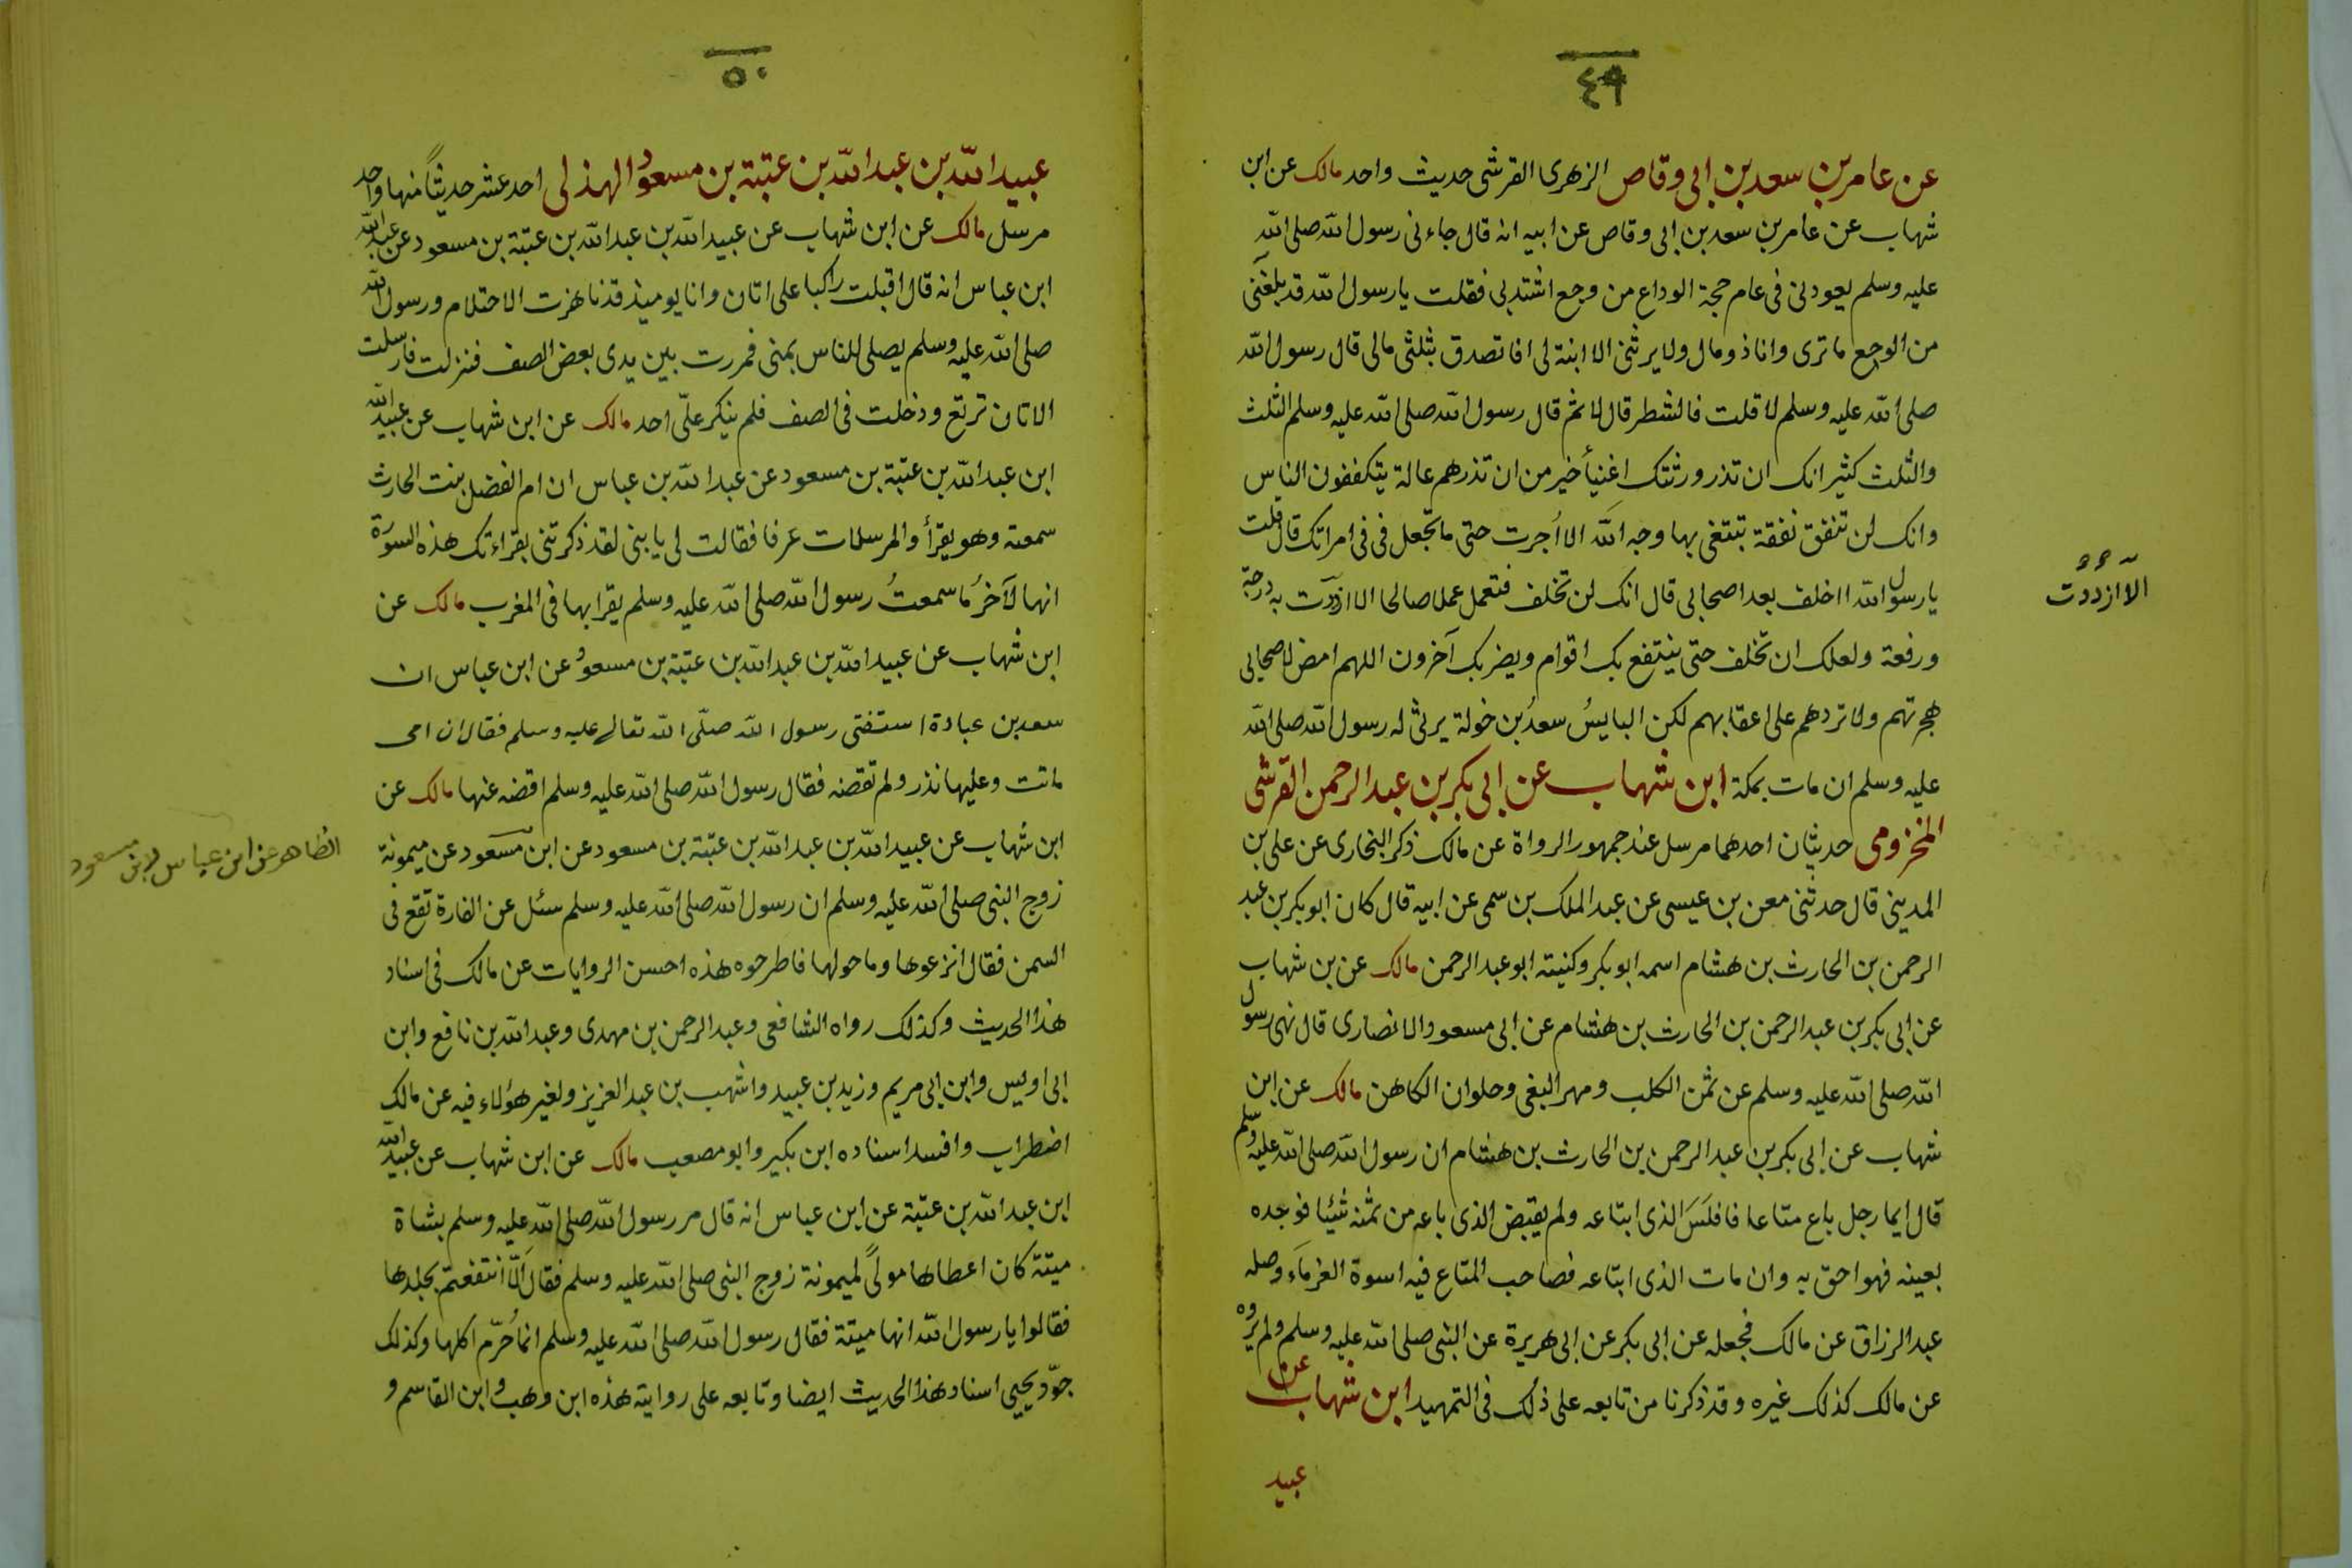 ٤٩
عن عامر بن سعد بن ابى وقاص الزهرى القرشى حديث واحد مالك عن ابن
شهاب عن عامر بن سعد بن ابى وقاص عن ابيه انه قال جاءنى رسول الله صلى الله
عليه وسلم يعودنى فى عام حجة الوداع من وجع اشتد بى فقلت يا رسول الله قد بلغنى
من الوجع ما ترى وانا ذو مال ولا يرثنى الا ابنة لى افاتصدق بثلثى مالى قال رسول الله
صلى الله عليه وسلم لا قلت فالشطر قال لا ثم قال رسول الله صلى الله عليه وسلم الثلث
والثلث كثير انك ان تذر ورثتك اغنيأ خير من ان تذرهم عالة يتكففون الناس
وانك لن تنفق نفقة تبتغى بها وجه الله الا اُجرت حتى ما تجعل فى فى امراتك قال قلت
يا رسول الله ااخلف بعد اصحابى قال انك لن تخلف فتعمل عملا صالحا الا ازددت به درجة
ورفعة ولعلك ان تخلف حتى ينتفع بك اقوام ويضر بك آخرون اللهم امض لاصحابى
هجرتهم ولا تردهم على اعقابهم لكن البايسُ سعدُ بن خولة يرثى له رسول الله صلى الله
عليه وسلم ان مات بمكة ابن شهاب عن ابى بكر بن عبد الرحمن القرشى
المخزومى حديثان احدهما مرسل عند جمهور الرواة عن مالك ذكر البخارى عن على بن
المدينى قال حدثنى معن بن عيسى عن عبد الملك بن سمى عن ابيه قال كان ابو بكر بن عبد
الرحمن بن الحارث بن هشام اسمه ابو بكر وكنيته ابو عبد الرحمن مالك عن بن شهاب
عن ابى بكر بن عبد الرحمن بن الحارث بن هشام عن ابى مسعود الانصارى قال نهى رسول
الله صلى الله عليه وسلم عن ثمن الكلب ومهر البغى وحلوان الكاهن مالك عن ابن
شهاب عن ابى بكر بن عبد الرحمن بن الحارث بن هشام ان رسول الله صلى الله عليه وسلم
قال ايما رجل باع متاعا فافلَسَ الذى ابتاعه ولم يقبض الذى باعه من ثمنه شيئا فوجده
بعينه فهو احق به وان مات الذى ابتاعه فصاحب المتاع فيه اسوة الغرماَء وصله
عبد الرزاق عن مالك فجعله عن ابى بكر عن ابى هريرة عن النبى صلى الله عليه وسلم ولم يروه
عن مالك كذلك غيره وقد ذكرنا من تابعه على ذلك فى التمهيد ابن شهاب عن
عبيد
الا ازددت
٥٠
عبيد الله بن عبد الله بن عتبة بن مسعود الهذلى احد عشر حديثاً منها واحد
مرسل مالك عن ابن شهاب عن عبيد الله بن عبد الله بن عتبة بن مسعود عن عبد الله
ابن عباس انه قال اقبلت راكبا على اتان وانا يوميذ قد ناهزت الاحتلام ورسول الله
صلى الله عليه وسلم يصلى للناس بمنى فمررت بين يدى بعض الصف فنزلت فارسلت
الاتان ترتع ودخلت فى الصف فلم ينكر علىّ احد مالك عن ابن شهاب عن عبيد الله
ابن عبد الله بن عتبة بن مسعود عن عبد الله بن عباس ان ام الفضل بنت الحارث
سمعته وهو يقرأ والمرسلات عرفا فقالت لى يا بنى لقد ذكرتنى بقراءتك هذه السورة
انها لآخرُ ما سمعتُ رسول الله صلى الله عليه وسلم يقرا بها فى المغرب مالك عن
ابن شهاب عن عبيد الله بن عبد الله بن عتبة بن مسعود عن ابن عباس ان
سعد بن عبادة استفتى رسول الله صلّى الله تعالے عليه وسلم فقال ان امى
ماتت وعليها نذر ولم تقضه فقال رسول الله صلى الله عليه وسلم اقضه عنها مالك عن
ابن شهاب عن عبيد الله بن عبد الله بن عتبة بن مسعود عن ابن مسعود عن ميمونة
زوج النبى صلى الله عليه وسلم ان رسول الله صلى الله عليه وسلم سئل عن الفارة تقع فى
السمن فقال انزعوها وما حولها فاطرحوه هذه احسن الروايات عن مالك فى اسناد
هذا الحديث وكذلك رواه الشافعى وعبد الرحمن بن مهدى وعبد الله بن نافع وابن
ابى اويس وابن ابى مريم وزيد بن عبيد واشهب بن عبد العزيز ولغير هؤلاء فيه عن مالك
اضطراب وافسد اسناده ابن بكير وابو مصعب مالك عن ابن شهاب عن عبيد الله
ابن عبد الله بن عتبة عن ابن عباس انه قال مر رسول الله صلى الله عليه وسلم بشاة
ميتة كان اعطاها مولىً لميمونة زوج النبى صلى الله عليه وسلم فقال الّا انتفعتم بجلدها
فقالوا يا رسول الله انها ميتة فقال رسول الله صلى الله عليه وسلم انما حُرّم اكلها وكذلك
جوّد يحيى اسناد هذا الحديث ايضا وتابعه على روايته هذه ابن وهب وابن القاسم و
الظاهر عن ابن عباس لا ابن مسعود